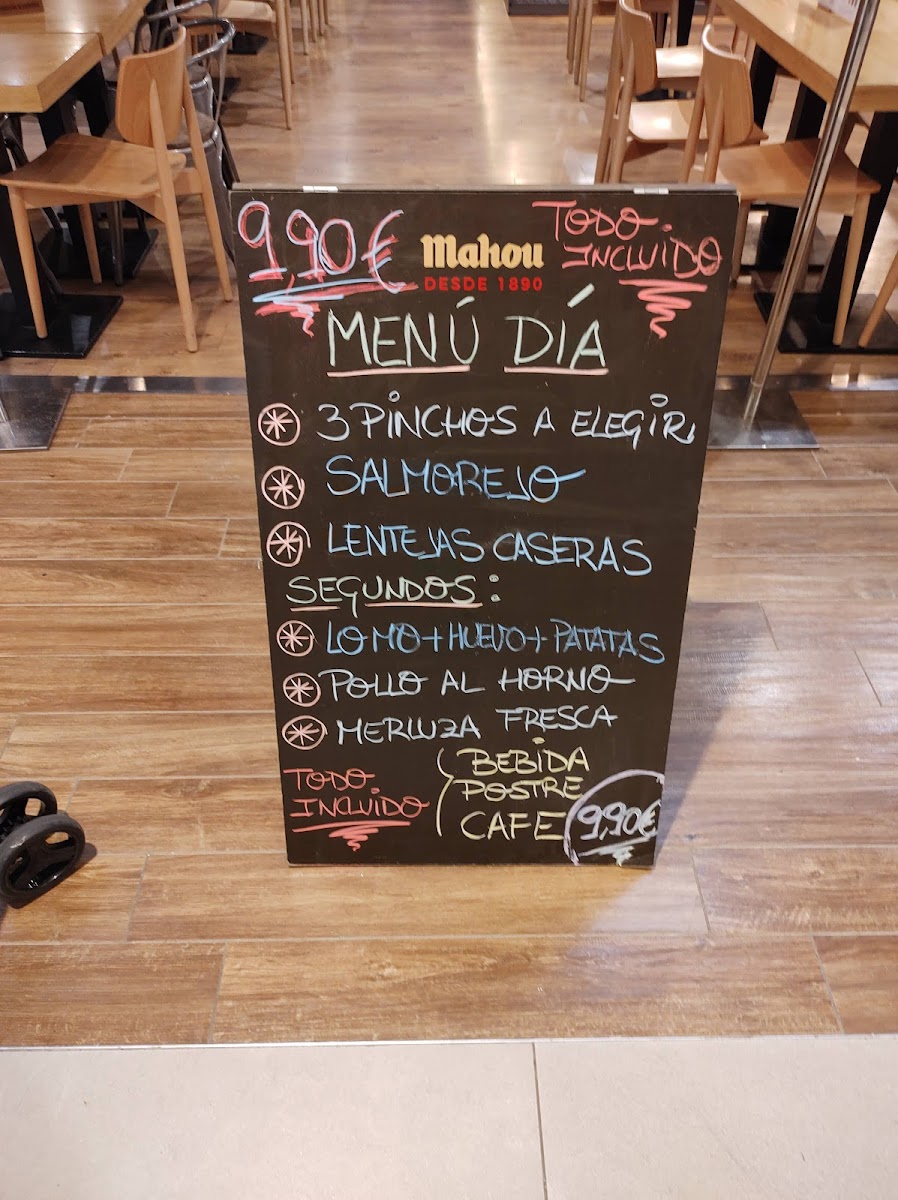 9,90€
Mahou
DESDE 1890
TODO
INCLUIDO
MENÚ DÍA
3 PINCHOS A ELEGIR,
SALMOREJO
LENTEJAS CASERAS
SEGUNDOS:
LOMO + HUEVO + PATATAS
POLLO AL HORNO
MERLUZA FRESCA
TODO
INCLUIDO
BEBIDA
POSTRE
CAFE
9,90€